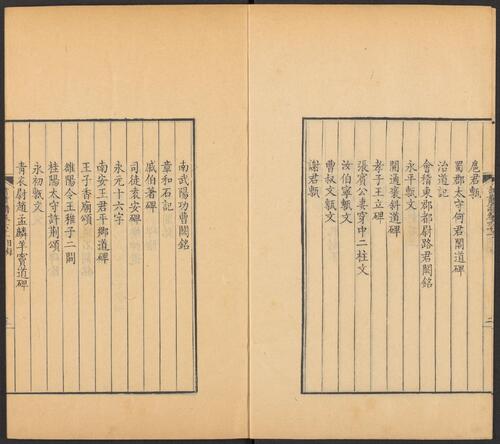 扈君甎
蜀郡太守何君閣道碑
治道記
會稽東部都尉路君闕銘
永平甎文
開通褒斜道碑
孝子王立碑
張賓公妻穿中二柱文
汝伯寧甎文
曹叔文甎文
謝君甎
南武陽功曹闕銘
章和石記
戚伯著碑
司徒袁安碑
永元十六字
南安王君平鄉道碑
王子香廟頌
雒陽令王稚子二闕
桂陽太守許荆頌
永初甎文
青衣尉趙孟麟羊竇道碑